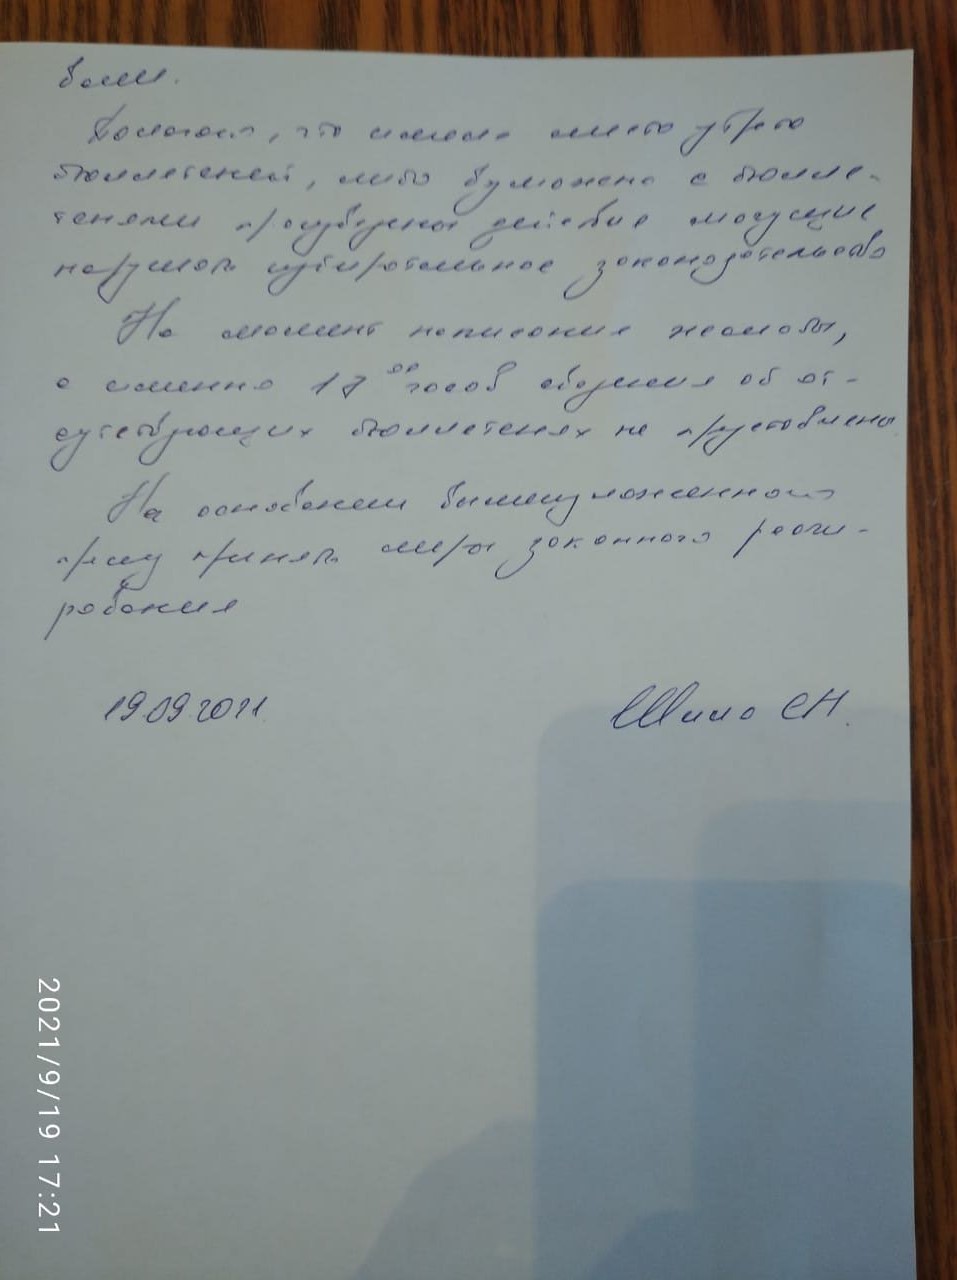 были.
Полагаю, что имело место утрата
бюллетеней, либо умножено с бюлле-
тенями произведены действия могущие
нарушать избирательное законодательство
На момент написания жалобы,
а именно 17 00 часов сведения об от-
сутствующих бюллетенях не представлены
На основании вышеизложенного
прошу принять меры законного реаги-
рования
19.09.2021
Шило СН.
2021/9/19 17:21